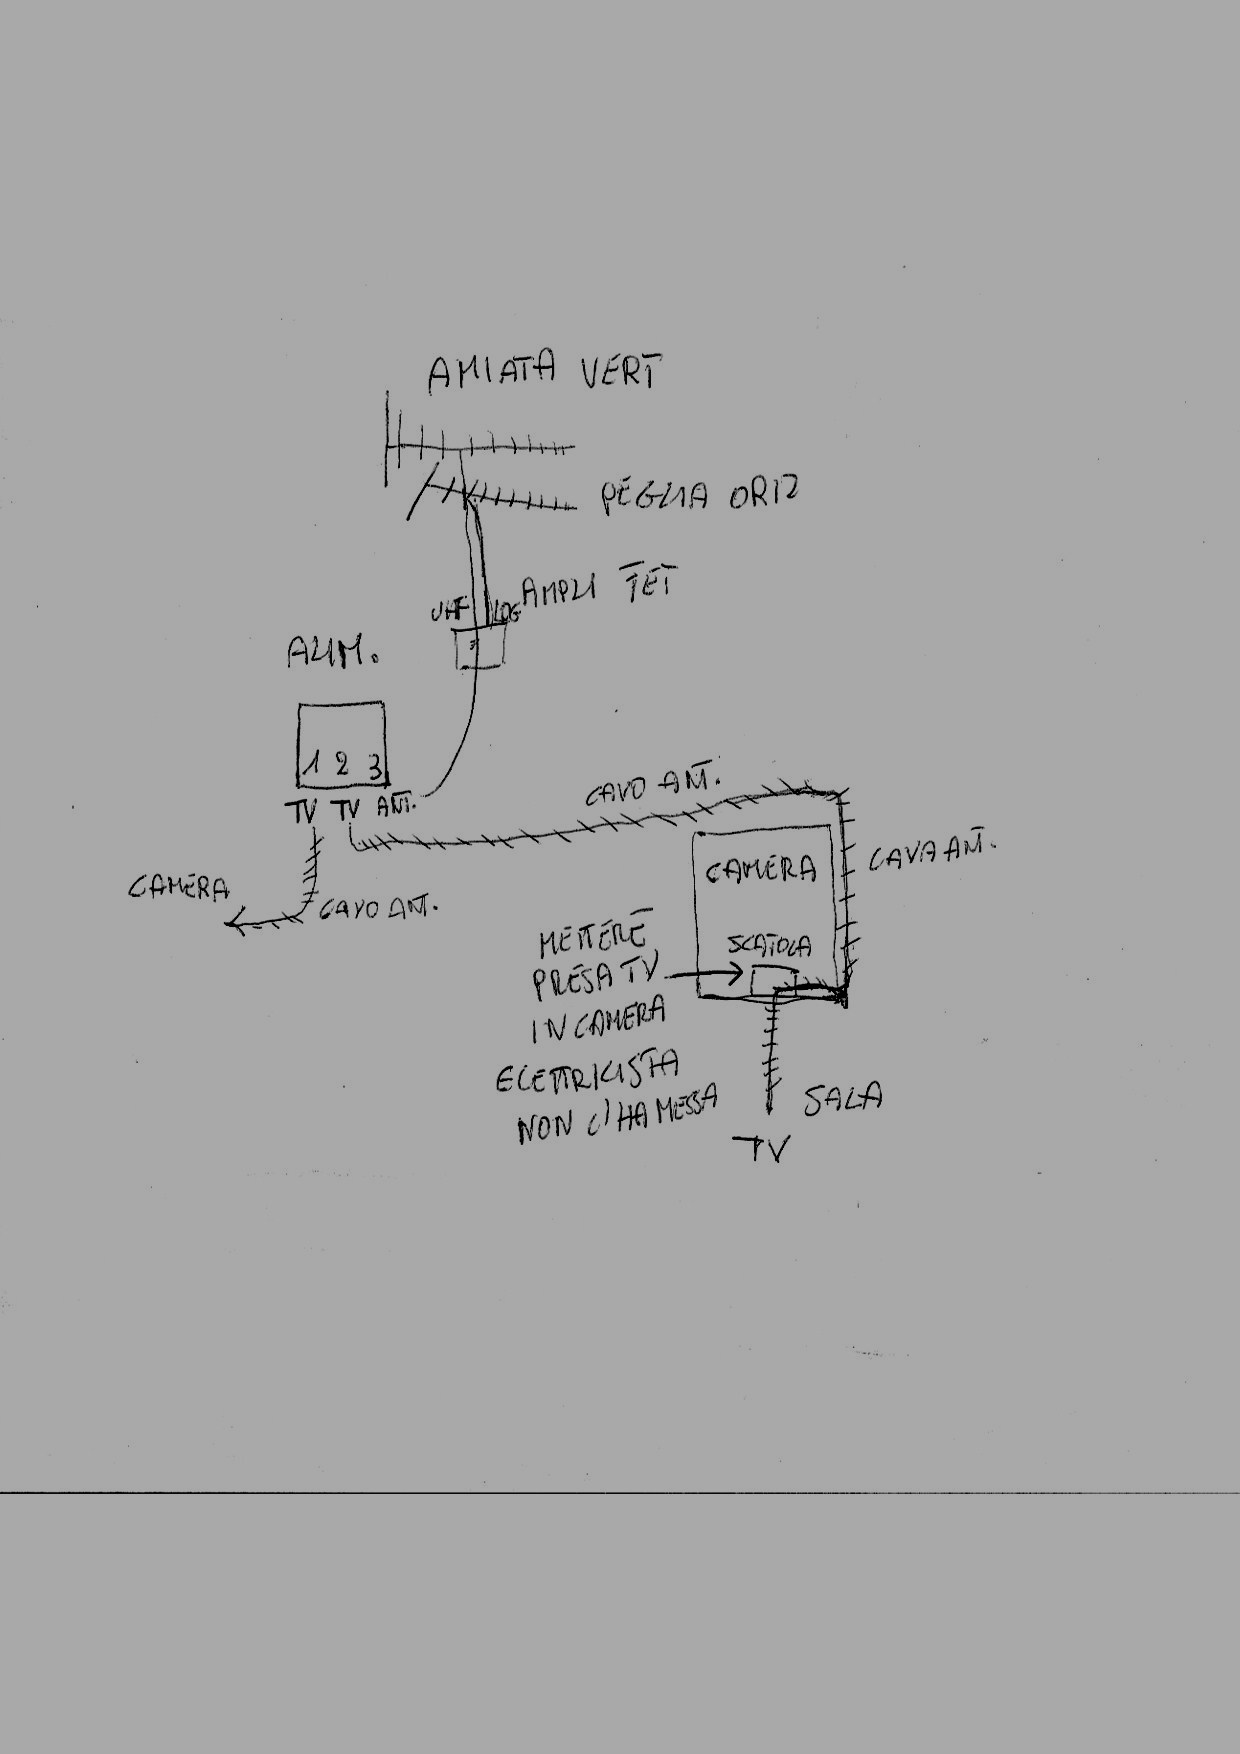 AMIATA VERT
PEGLIA ORIZ
AMPLI TET
UHF LOG
ALIM.
1 2 3
TV TV ANT.
CAVO ANT.
CAVA ANT.
CAMERA
CAMERA
CAVO ANT.
SCATOLA
METTERE
PRESA TV
IN CAMERA
ELETTRICISTA
NON L'HA MESSA
SALA
TV